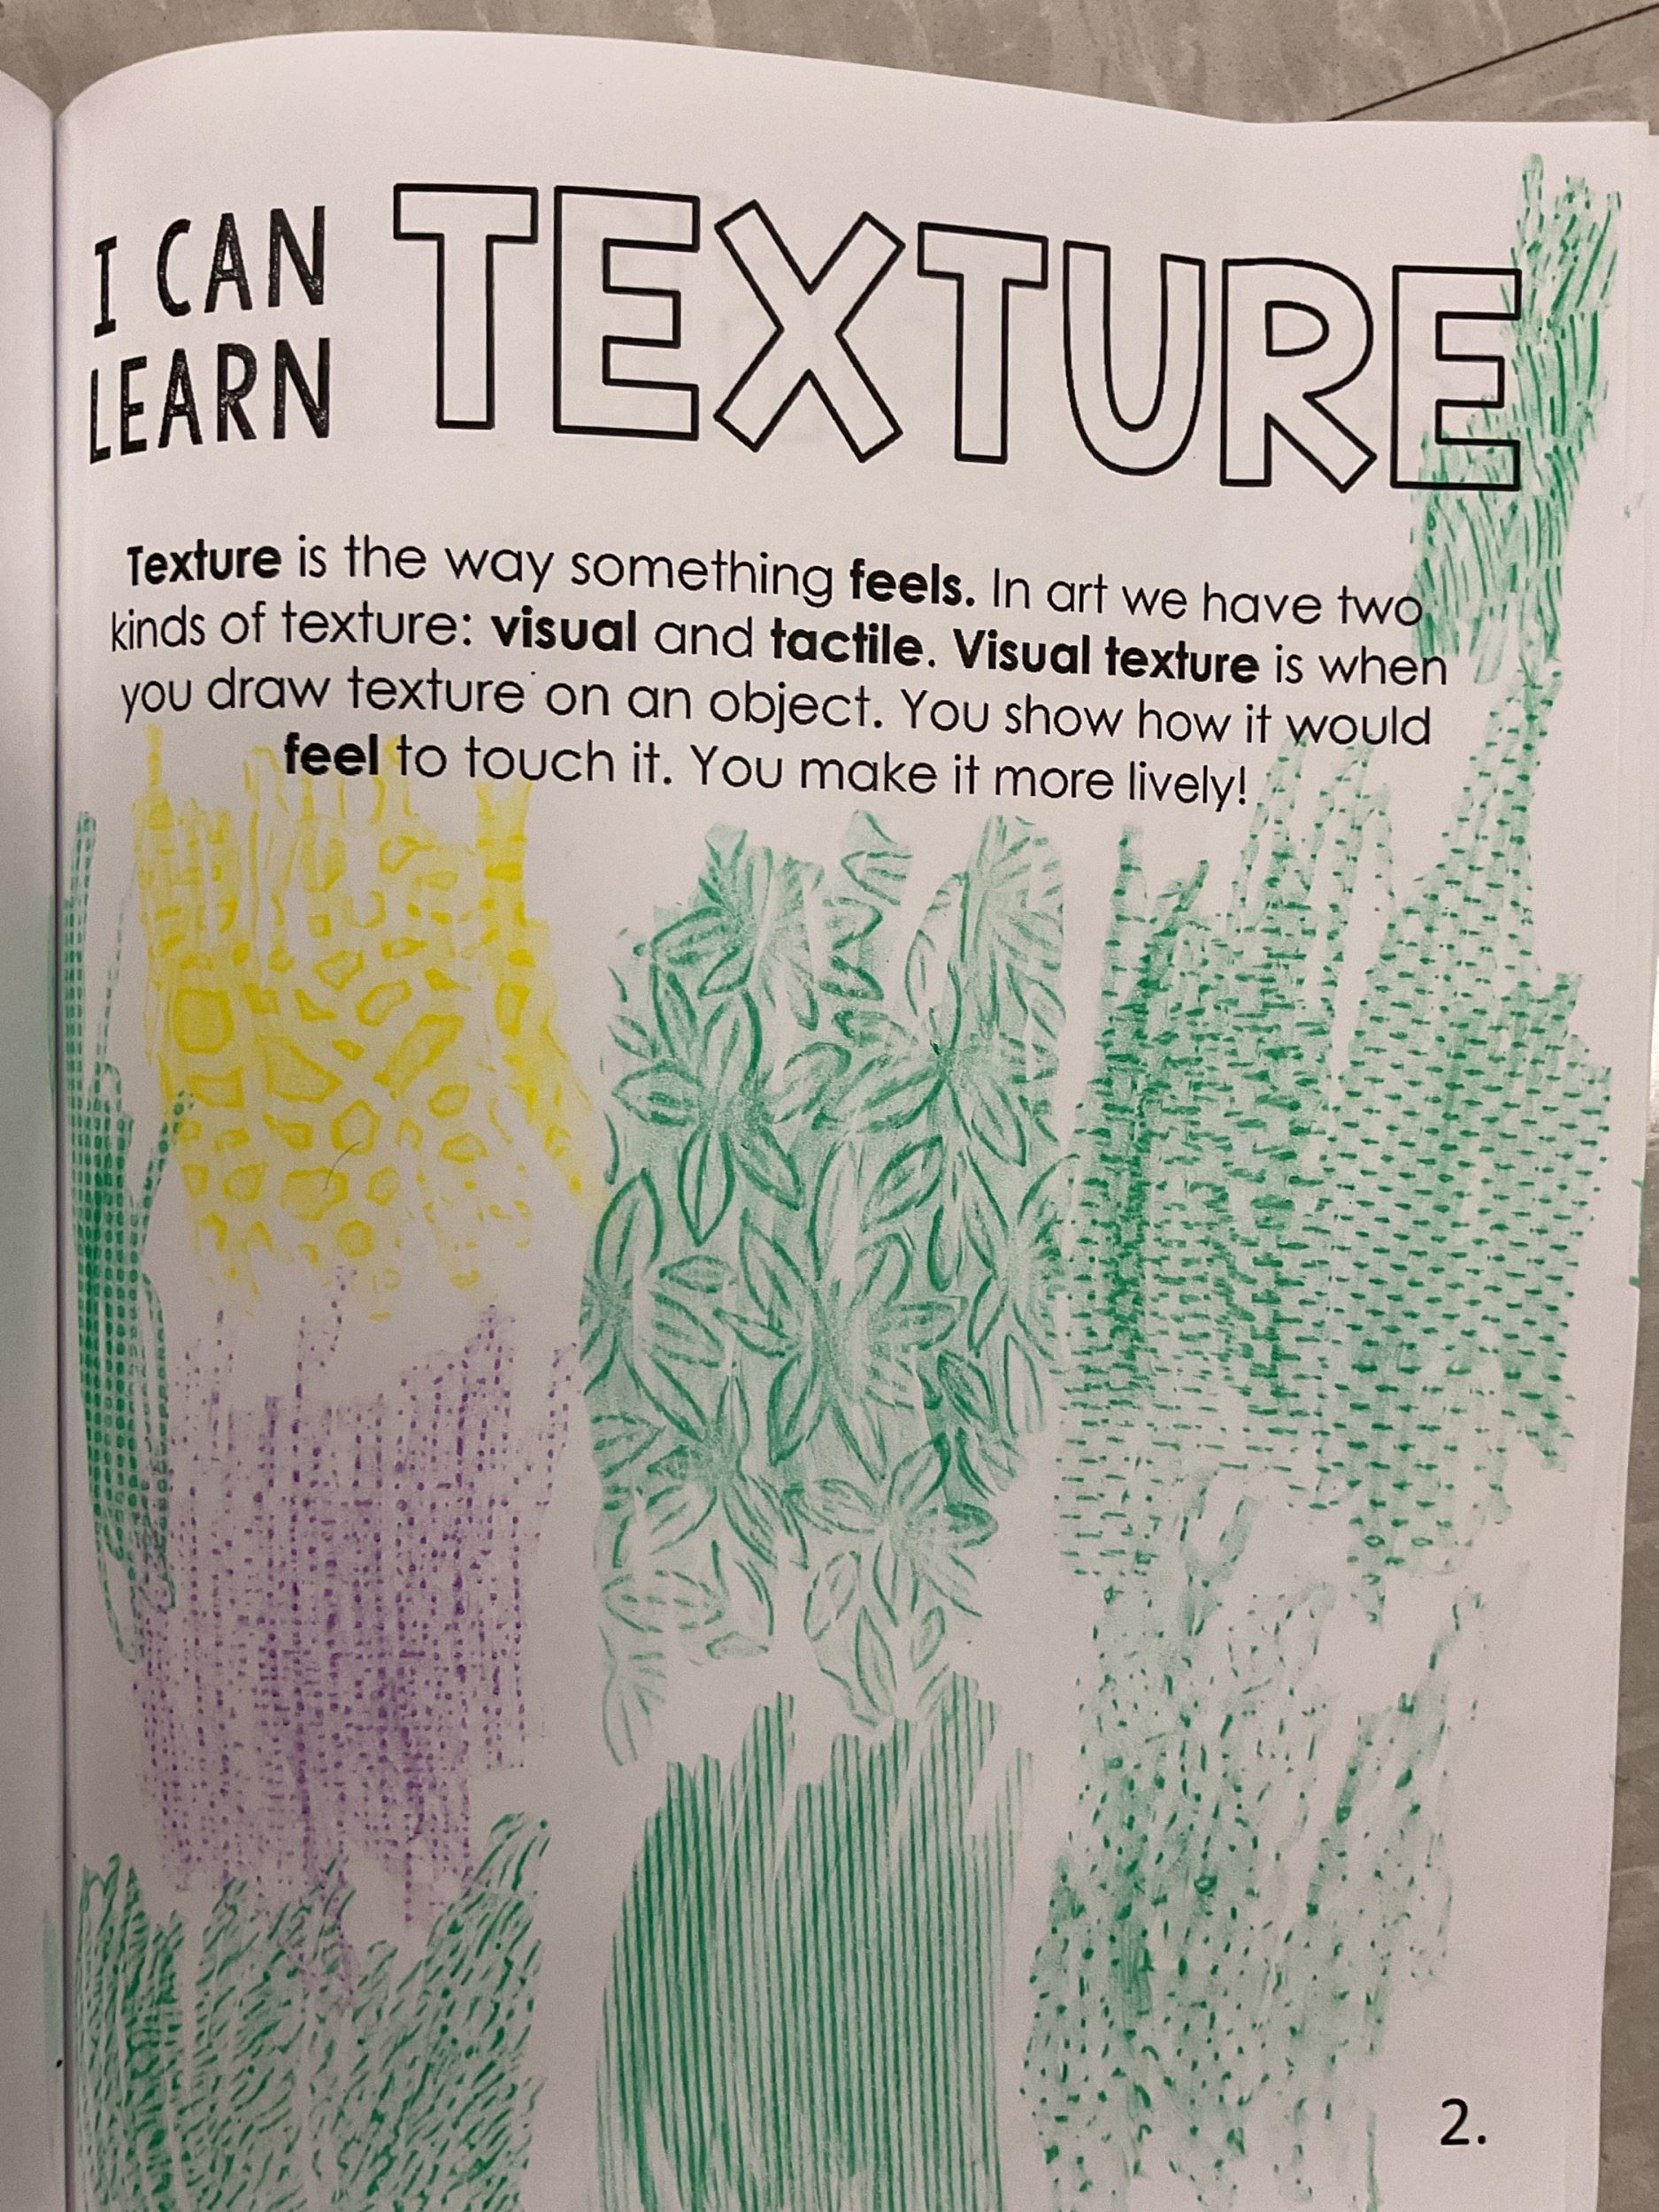 I CAN
LEARN
TEXTURE
Texture is the way something feels. In art we have two
kinds of texture: visual and tactile. Visual texture is when
you draw texture on an object. You show how it would
feel to touch it. You make it more lively!
2.